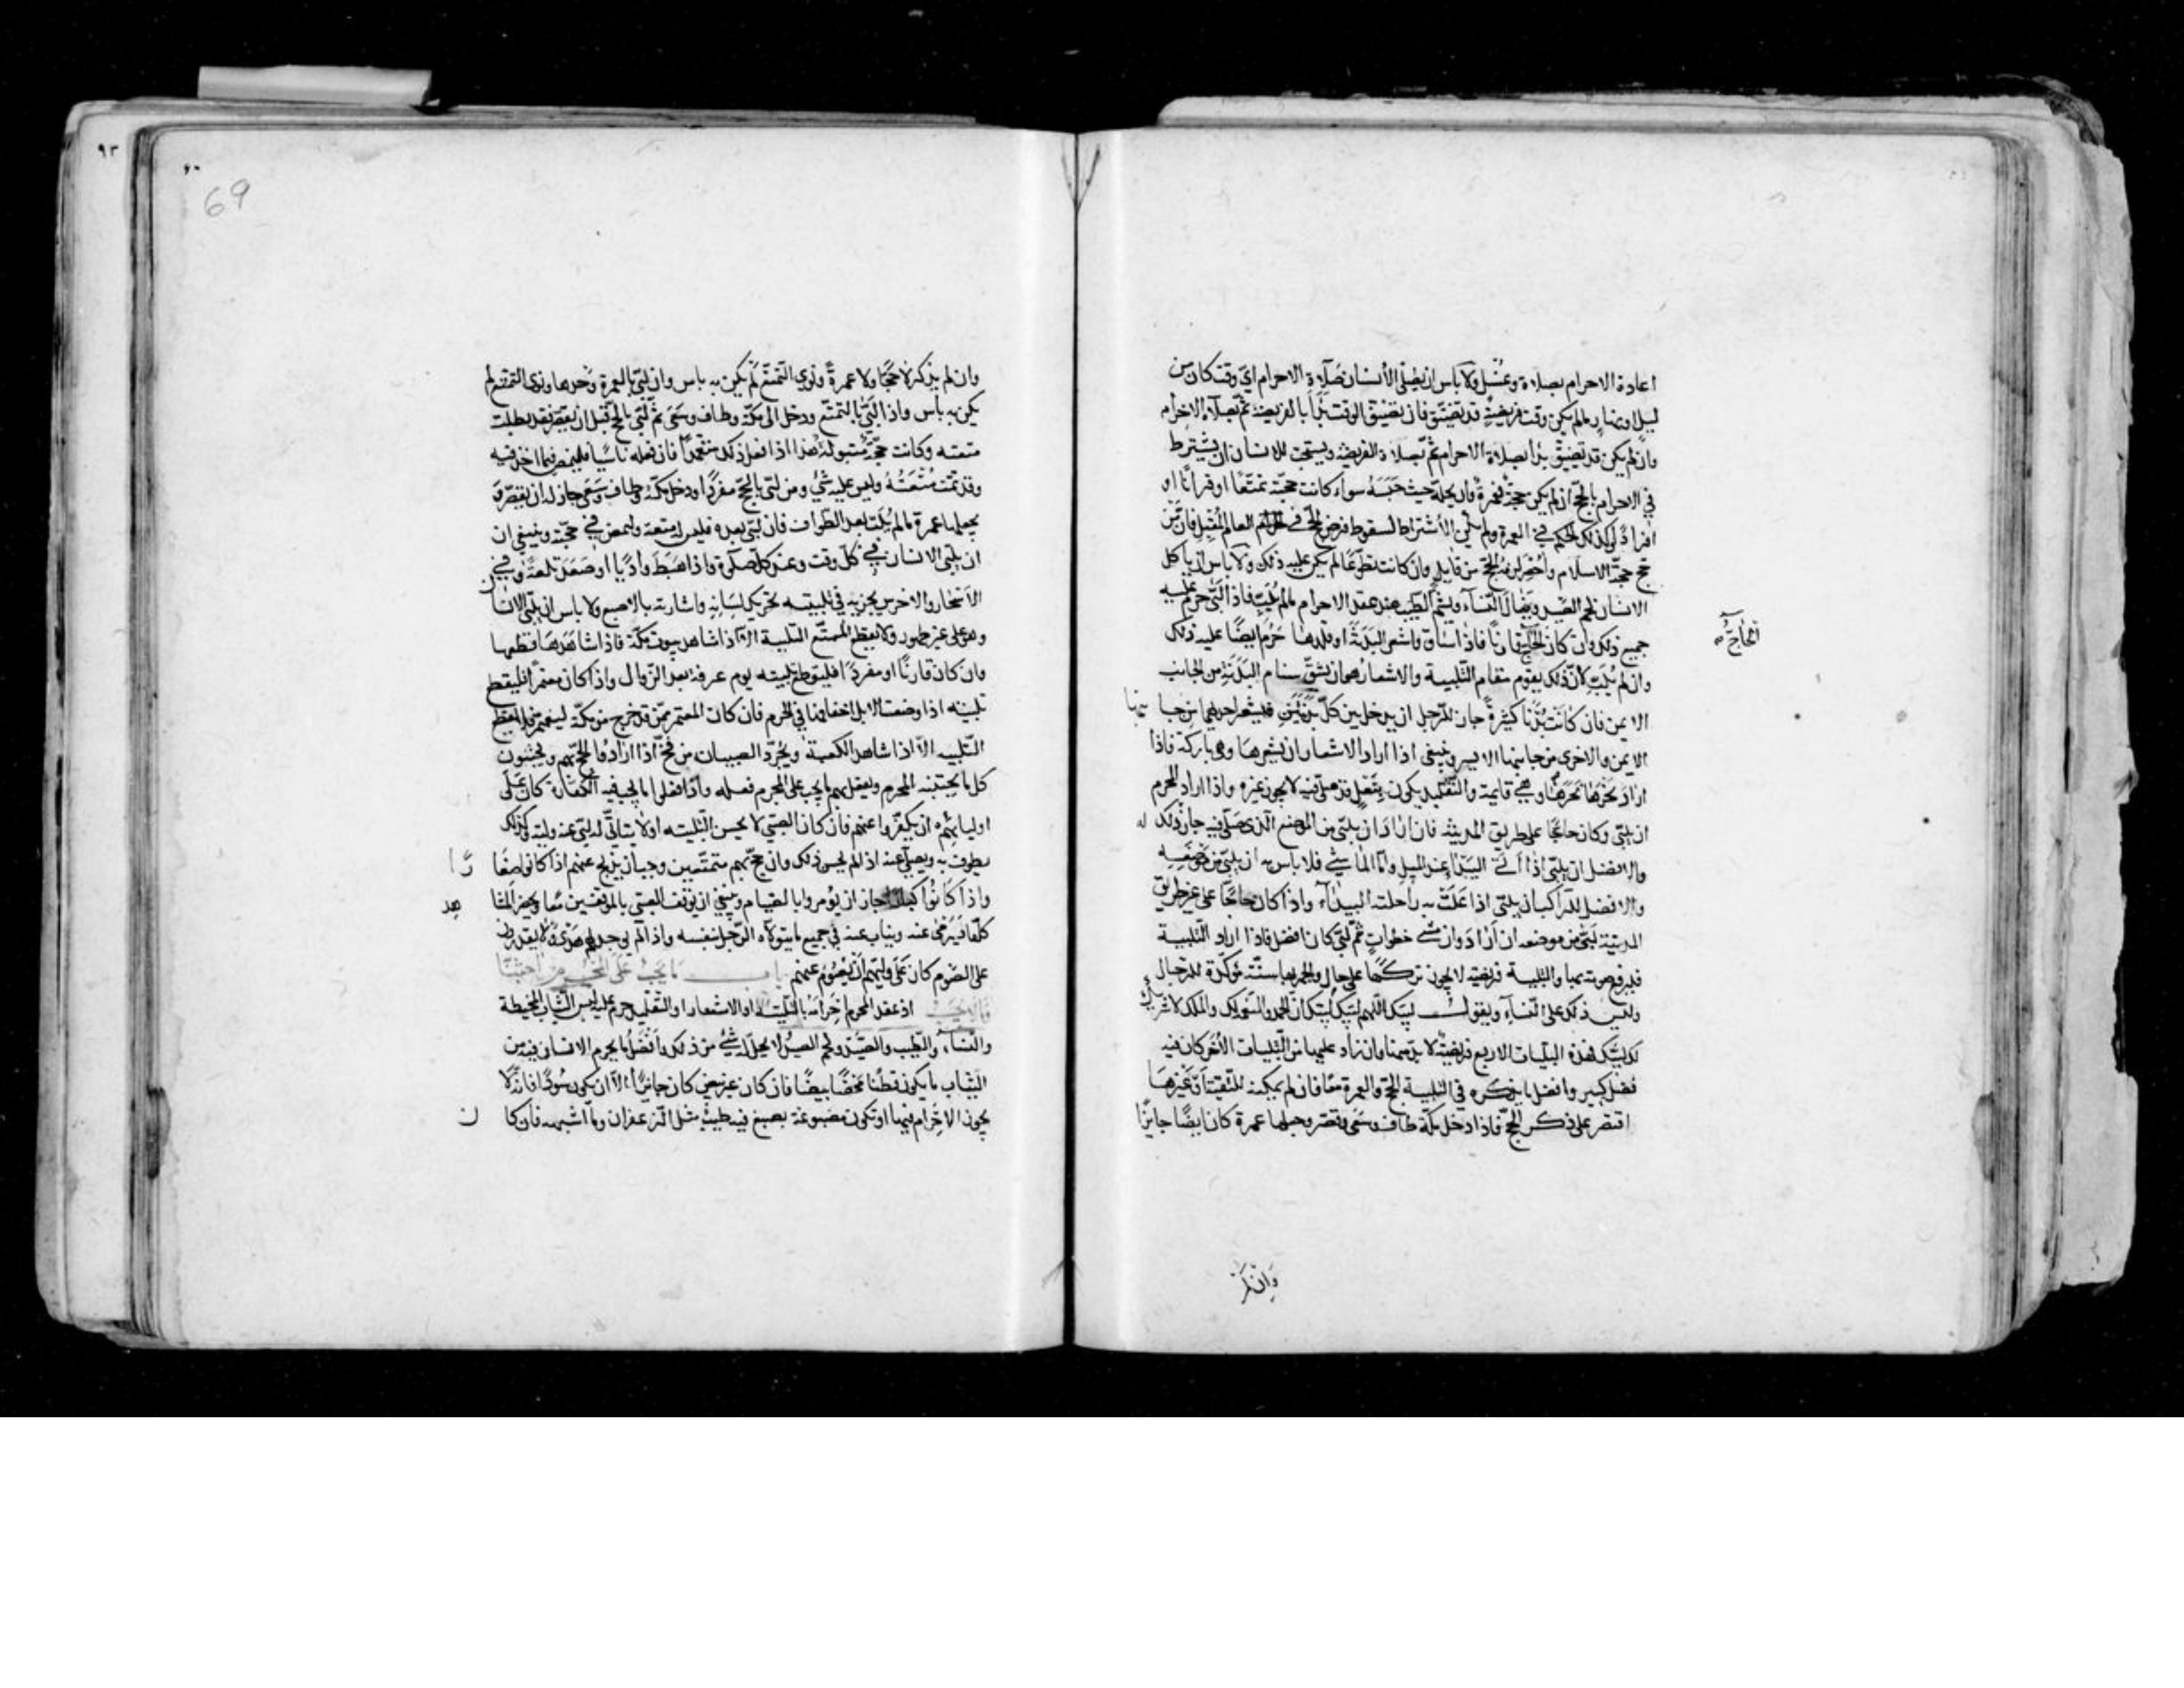 اعادة الاحرام بصلاة وغسل ولا باس ان يصلى الانسان صلاة الاحرام اىّ وقت كان من
ليل او نهار مالم يكن وقت فريضة قد تضيّق فان تضيّق الوقت بدأ بالفريضة ثم بصلاة الاحرام
وان لم يكن قد تضيّق بدأ بصلاة الاحرام ثم بصلاة الفريضة ويستحبّ للانسان ان يشترط
في الاحرام بالحجّ ان لم يكن حجة فعمرة وان يحلّه حيث حبسه سواء كانت حجته تمتّعا او قرانا او
افرادا وكذلك الحكم في العمرة ولم يكن الاشتراط لسقوط فرض الحج في العام المقبل فان من
حج حجة الاسلام وأحصر لزمه الحج من قابل وان كانت تطوعا لم يكن عليه ذلك ولا باس ان ياكل
الانسان لحم الصيد وينال النّساء ويشم الطيب بعد عقد الاحرام مالم يلبّ فاذا لبّى حرم عليه
جميع ذلك وان كان الحاج قارنا فاذا ساق واشعر البدنة او قلدها حرم ايضا عليه ذلك
الحاجّ
وان لم يلبّ لانّ ذلك يقوم مقام التّلبية والاشعار هو ان يشقّ سنام البدنة من الجانب
الايمن فان كانت بُدنا كثيرة جاز للرجل ان يدخل بين كلّ بدنتين فيشعر احديهما من جا نبها
الايمن والاخرى من جانبها الايسر وينبغى اذا اراد الاشعار ان يشعرها وهى باركة فاذا
اراد نحرها نحرها وهى قايمة والتّقليد يكون بنعل قد صلى فيه لا يجوز غيره واذا اراد المحرم
ان يلبّى وكان حاجّا على طريق المدينة فان اراد ان يلبّى من الموضع الّذى صلّى فيه جاز ذلك له
والافضل ان يلبّى اذا اتى البيداء عند الميل وامّا الماشى فلا باس به ان يلبّى من موضعه
والافضل للراكب ان يلبّى اذا علت به راحلته البيداء واذا كان حاجّا على غير طريق
المدينة لبّى من موضعه ان اراد وان مشى خطوات ثم لبّى كان افضل فاذا اراد التّلبية
فليرفع صوته بها والتلبية فريضة لا يجوز تركها على حال والجهر بها سنّة مؤكّدة للرّجال
وليس ذلك على النّساء ويقول لبّيك اللّهم لبّيك لبّيك ان الحمد والنّعمة لك والملك لا شريك
لك لبّيك فهذه التلبيات الاربع فريضة لا بدّ منها وان زاد عليها من التّلبيات الأُخر كان فيه
فضل كبير وافضل ما يذكره في التلبية الحج والعمرة معا فان لم يمكنه للتّقيّة او غيرها
اقتصر على ذكر الحجّ فاذا دخل مكّة طاف وسعى وقصّر وجعلها عمرة كان ايضا جايزا
وان لم
٩٣
69
وان لم يذكر لا حجّا ولا عمرة ونوى التّمتّع لم يكن به باس وان لبّى بالعمرة وحدها ونوى التمتع لم
يكن به باس واذا لبّى بالتمتّع ودخل الى مكّة وطاف وسعى ثم لبّى بالحجّ قبل ان يقصّر فقد بطلت
متعته وكانت حجّته مبتولة هذا اذا فعل ذلك متعمدا فان فعله ناسيا فليمض فيما اخذ فيه
وقد تمّت متعته وليس عليه شى ومن لبّى بالحجّ مفردا ودخل مكّة وطاف وسعى جاز له ان يقصّر و
يجعلها عمرة مالم يلبّ بعد الطواف فان لبّى بعده فليس له متعة وليمض في حجّته وينبغى ان
ان يلبّى الانسان في كل وقت وعند كلّ صلوة واذا هبط واديا او صعد تلعة وفي
الاسحار والاخرس يجزيه في تلبيته تحريك لسانه واشارته بالاصبع ولا باس ان يلبّى الانسا ن
وهو على غير طهور ولا يقطع المتمتّع التلبية الّا اذا شاهد بيوت مكّة فاذا شاهدها قطعها
وان كان قارنا او مفردا فليقطع تلبيته يوم عرفة بعد الزّوال واذا كان معتمرا فليقطع
تلبيته اذا وضعت الابل اخفافها في الحرم فان كان المعتمر ممّن قد خرج من مكّة ليعتمر فلا يقطع
التّلبيه الّا اذا شاهد الكعبة ويجرّد الصبيان من فخّ اذا ارادوا الحجّ بهم ويجتنبون
كل ما يجتنبه المحرم ويفعل بهم ما يجب على المحرم فعله واذا فعلوا ما يجب فيه الكفارة كان على
اوليائهم ان يكفّروا عنهم فان كان الصبىّ لا يحسن التّلبية او لا يتاتّى له لبّى عنه وليّه وكذلك
يطوف به ويصلّى عنه اذا لم يحسن ذلك وان حجّ بهم متمتّعين وجب ان يذبح عنهم اذا كانوا صغا رًا
واذا كانوا كبارا جاز ان يؤمروا بالصيام وينبغى ان يوقف الصبى بالموقفين معا ويحضر المشا هد
كلّها ويرمى عنه ويناب عنه في جميع ما يتولاه الرّجل بنفسه واذا لم يوجد لهم هدى ولا يقدرون
على الصّوم كان على وليّهم ان يصوم عنهم باب ما يجب على المحرم اجتنابه
وما لا يجب اذا عقد المحرم احرامه بالتلبية او الاشعار او التقليد حرم عليه لبس الثّياب المخيطة
والنّساء والطّيب والصّيد ولحم الصيد لا يحلّ له شى من ذلك وافضل ما يحرم الانسان فيه من
الثياب ما يكون قطنا محضا بيضا فان كان غير بيض كان جايزا الّا ان يكون سودا فانّه لا
يجوز الاحرام فيها او تكون مصبوغة بصبغ فيه طيب مثل الزعفران وما اشبهه فان كا ن